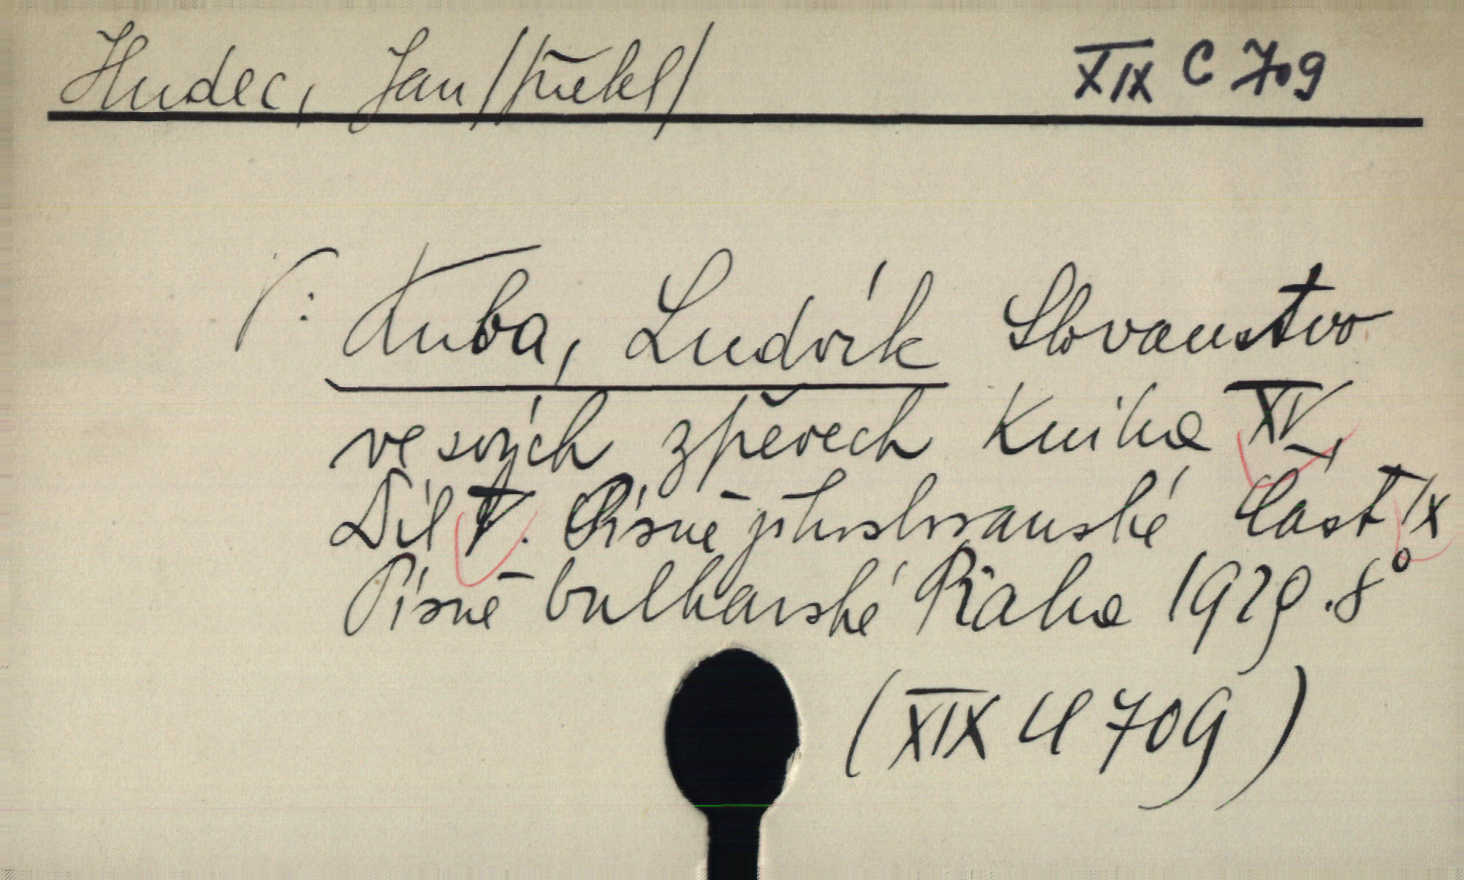 Hudec, Jan /překl/
XIX C 709
V: Kuba, Ludvík Slovanstvo
ve svých zpěvech Kniha XV,
Díl V. Písně jihoslovanské Část IX
Písně bulharské Praha 1929. 8°
(XIX C 709)